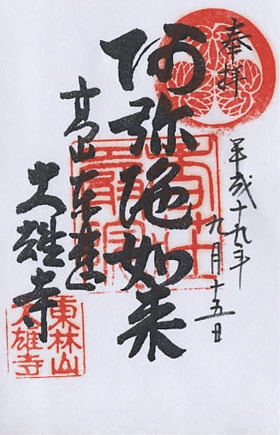 奉拝
平成十九年
九月十五日
阿弥陀如来
大雄寺
東林山
大雄寺